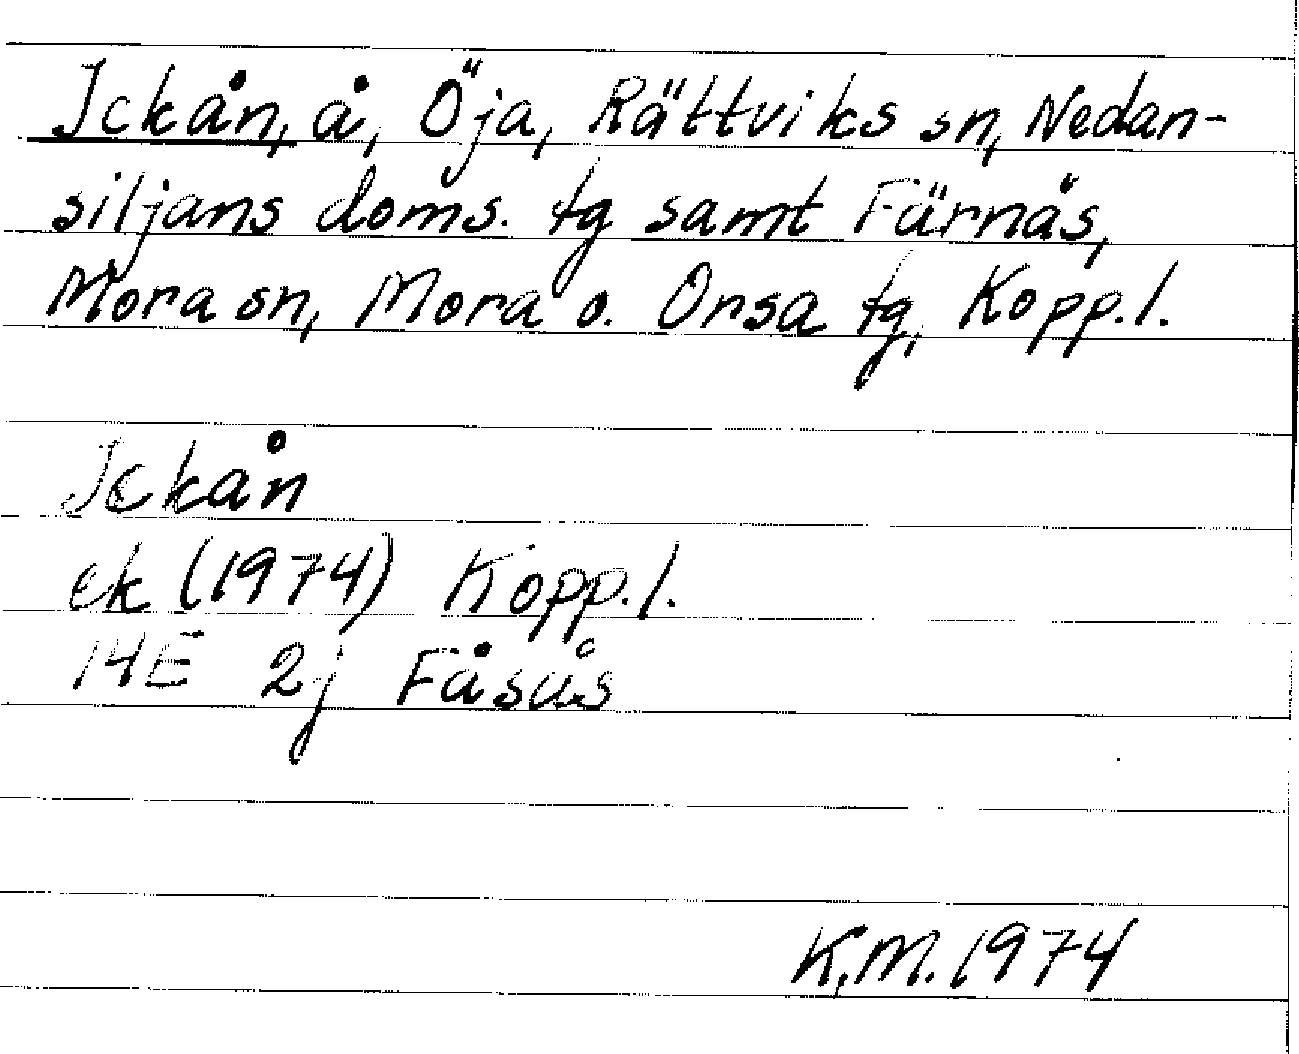 Ickån, å, Öja, Rättviks sn, Nedan-
siljans doms. tg samt Färnås,
Mora sn, Mora o. Orsa tg, Kopp.l.
Ickån
ek (1974) Kopp.l.
14E 2j Fåsås
K.M. 1974